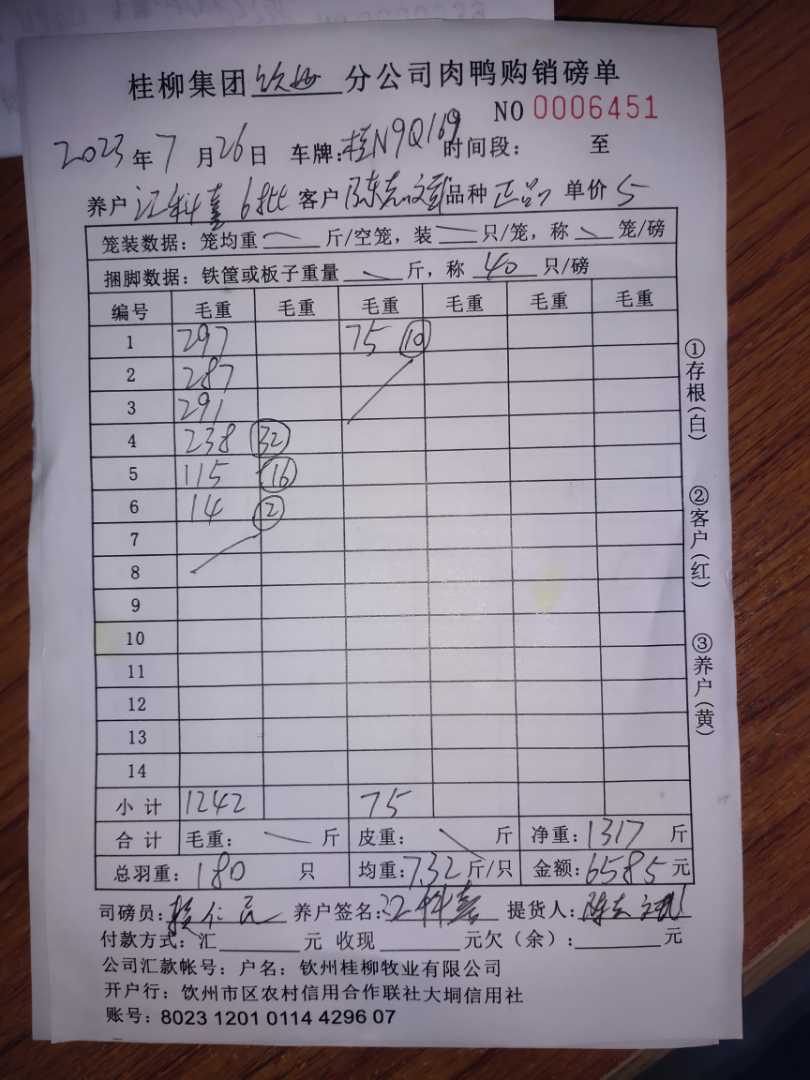 桂柳集团钦州分公司肉鸭购销磅单
NO 0006451
2023年7月26日 车牌:桂N9Q169 时间段: 至
养户 江科喜 6批 客户 陈志文 品种 正品 单价 5
笼装数据: 笼均重 斤/空笼, 装 只/笼, 称 笼/磅
捆脚数据: 铁筐或板子重量 斤, 称 40 只/磅
编号 毛重 毛重 毛重 毛重 毛重 毛重
1 297 75 10
2 287
3 291
4 238 32
5 115 16
6 14 2
7
8
9
10
11
12
13
14
小计 1242 75
合计 毛重: 斤 皮重: 斤 净重: 1317 斤
总羽重: 180 只 均重: 7.32 斤/只 金额: 6585 元
司磅员: 养户签名: 江科喜 提货人:
付款方式: 汇 元 收现 元欠(余): 元
公司汇款帐号: 户名: 钦州桂柳牧业有限公司
开户行: 钦州市区农村信用合作联社大垌信用社
账号: 8023 1201 0114 4296 07
①存根(白)
②客户(红)
③养户(黄)